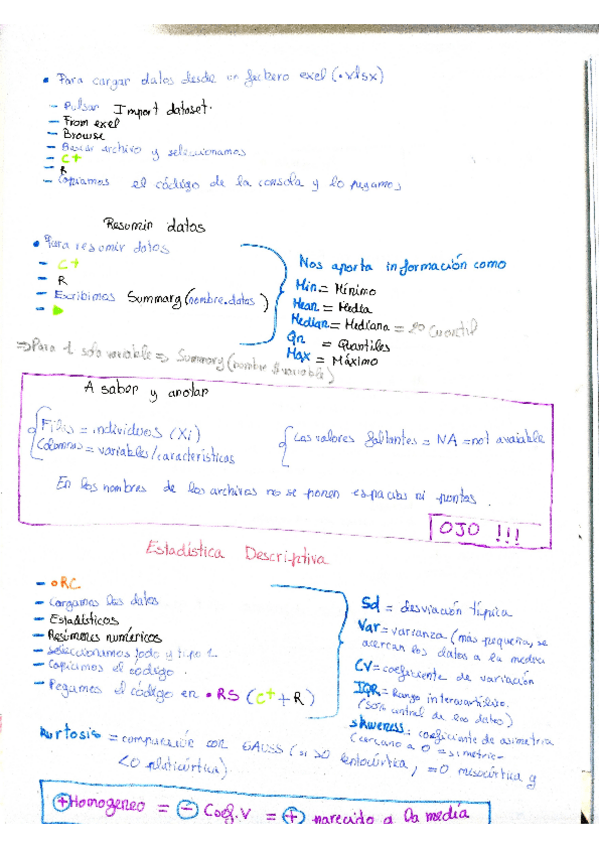 • Para cargar datos desde un fichero exel (.xlsx)
- Pulsar Import dataset.
- From exel
- Browse
- Buscar archivo y seleccionamos
- C+
- R
- Copiamos el código de la consola y lo pegamos
Resumir datos
• Para resumir datos
- C+
- R
- Escribimos Summary (nombre.datos)
-
Nos aporta información como
Min = Mínimo
Mean = Media
Median = Mediana = 2º Cuartil
Qn = Quantiles
Max = Máximo
⇒ Para 1 solo variable ⇒ Summary (nombre $ variable)
A saber y anotar
Filas = individuos (Xi)
Columnas = variables/características
Los valores faltantes = NA = not avaiable
En los nombres de los archivos no se ponen espacios ni puntos.
OJO !!!
Estadística Descriptiva
- •RC
- Cargamos los datos
- Estadísticos
- Resúmenes numéricos
- Seleccionamos todo y tipo 2
- Copiamos el código.
- Pegamos el código en •RS (C+ + R)
Sd = desviación típica
Var = varianza (más pequeña, se
acercan los datos a la media
CV = coeficiente de variación
IQR = Rango intercuartílico.
(50% central de los datos)
skweness: coeficiente de asimetria
(cercano a 0 = simetric-
kurtosis = comparación con GAUSS (si >0 leptocúrtica, =0 mesocúrtica y
<0 platicúrtica)
+ Homogeneo = - Coef.V = + parecido a la media